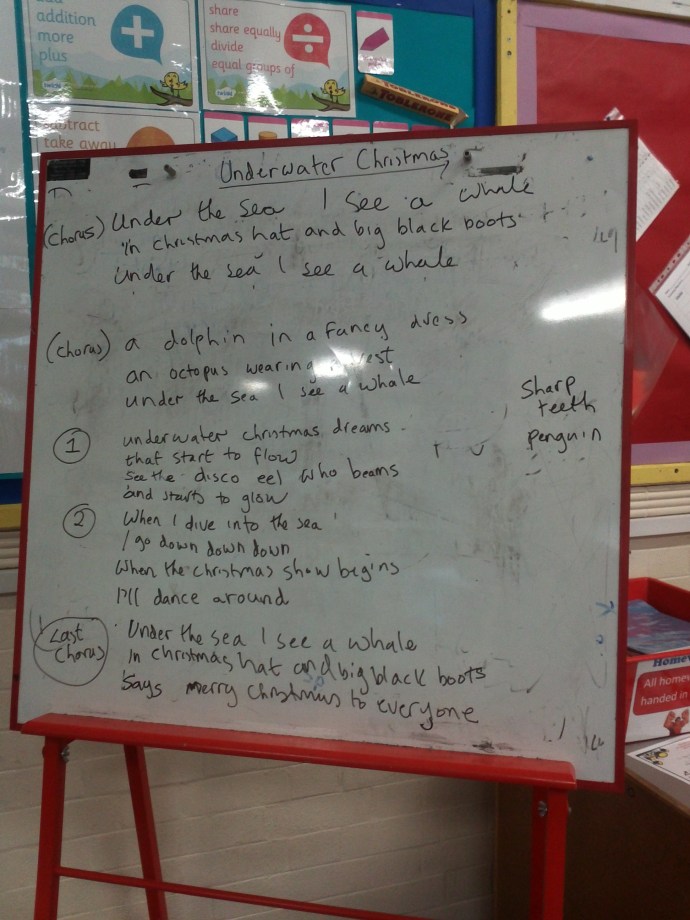 addition
more
plus
share
share equally
divide
equal groups of
subtract
take away
TOBLERONE
Underwater Christmas
(Chorus) Under the sea I see a whale
in christmas hat and big black boots
Under the sea I see a whale
(Chorus) a dolphin in a fancy dress
an octopus wearing vest
under the sea I see a whale
Sharp
teeth
penguin
1 underwater christmas dreams
that start to flow
See the disco eel who beams
and starts to glow
2 When I dive into the sea
I go down down down
When the christmas show begins
I'll dance around
Last
Chorus
Under the sea I see a whale
in christmas hat and big black boots
Says merry christmas to everyone
All
handed in